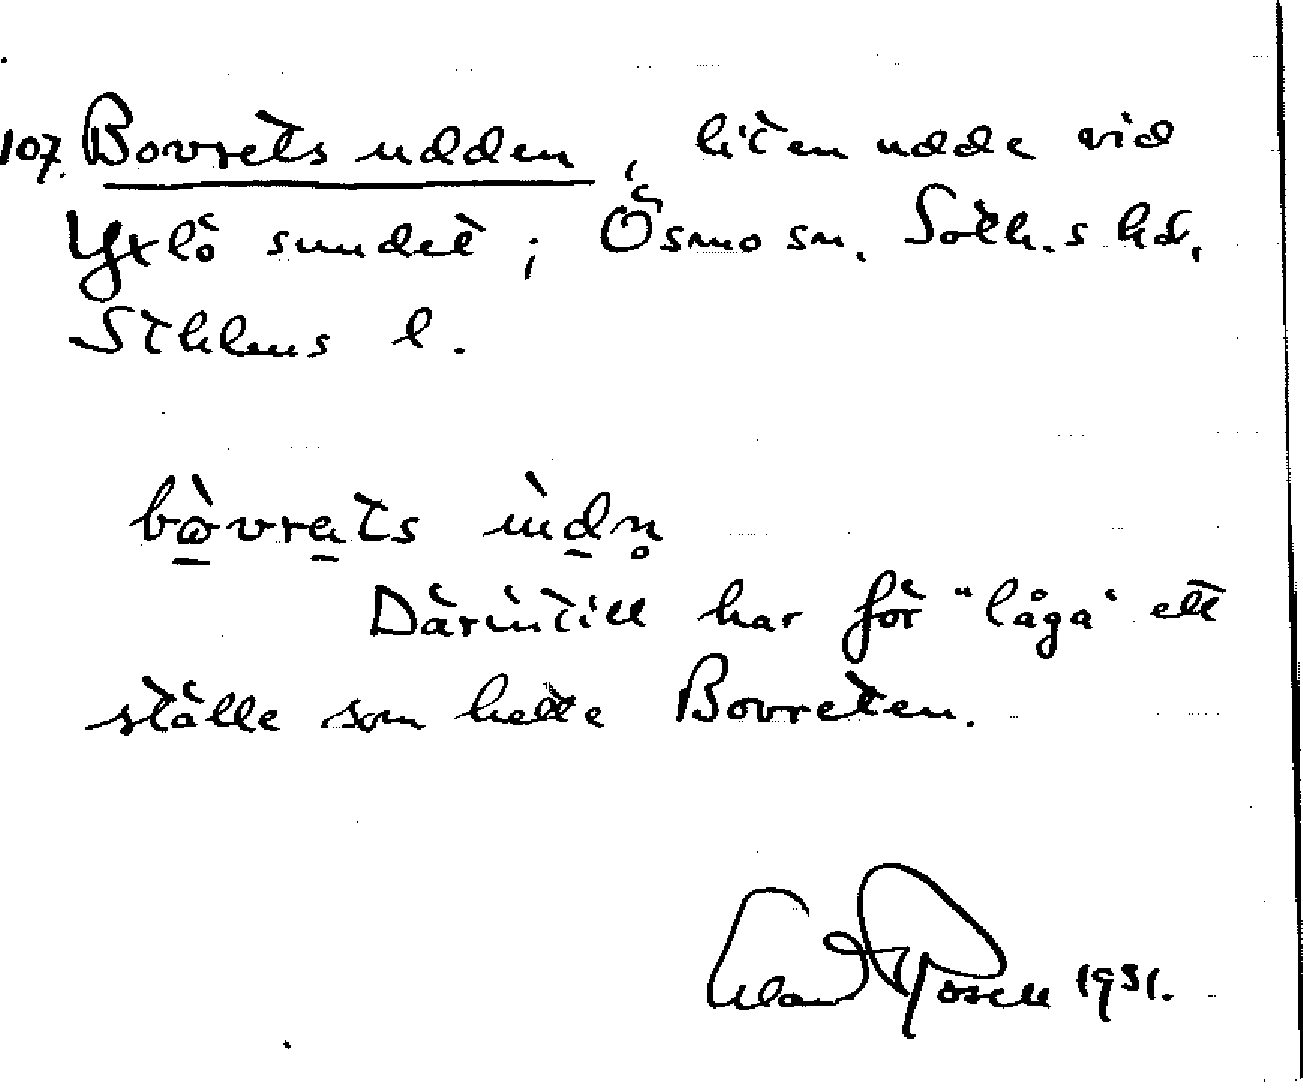 107. Bovrets udden, liten udde vid
Yxlö sundet; Ösmo sn. Soth.s hd.
Sthlms l.
bòvrats ùdn̥
Därintill har för "låga" ett
ställe som hette Bovreten.
1931.